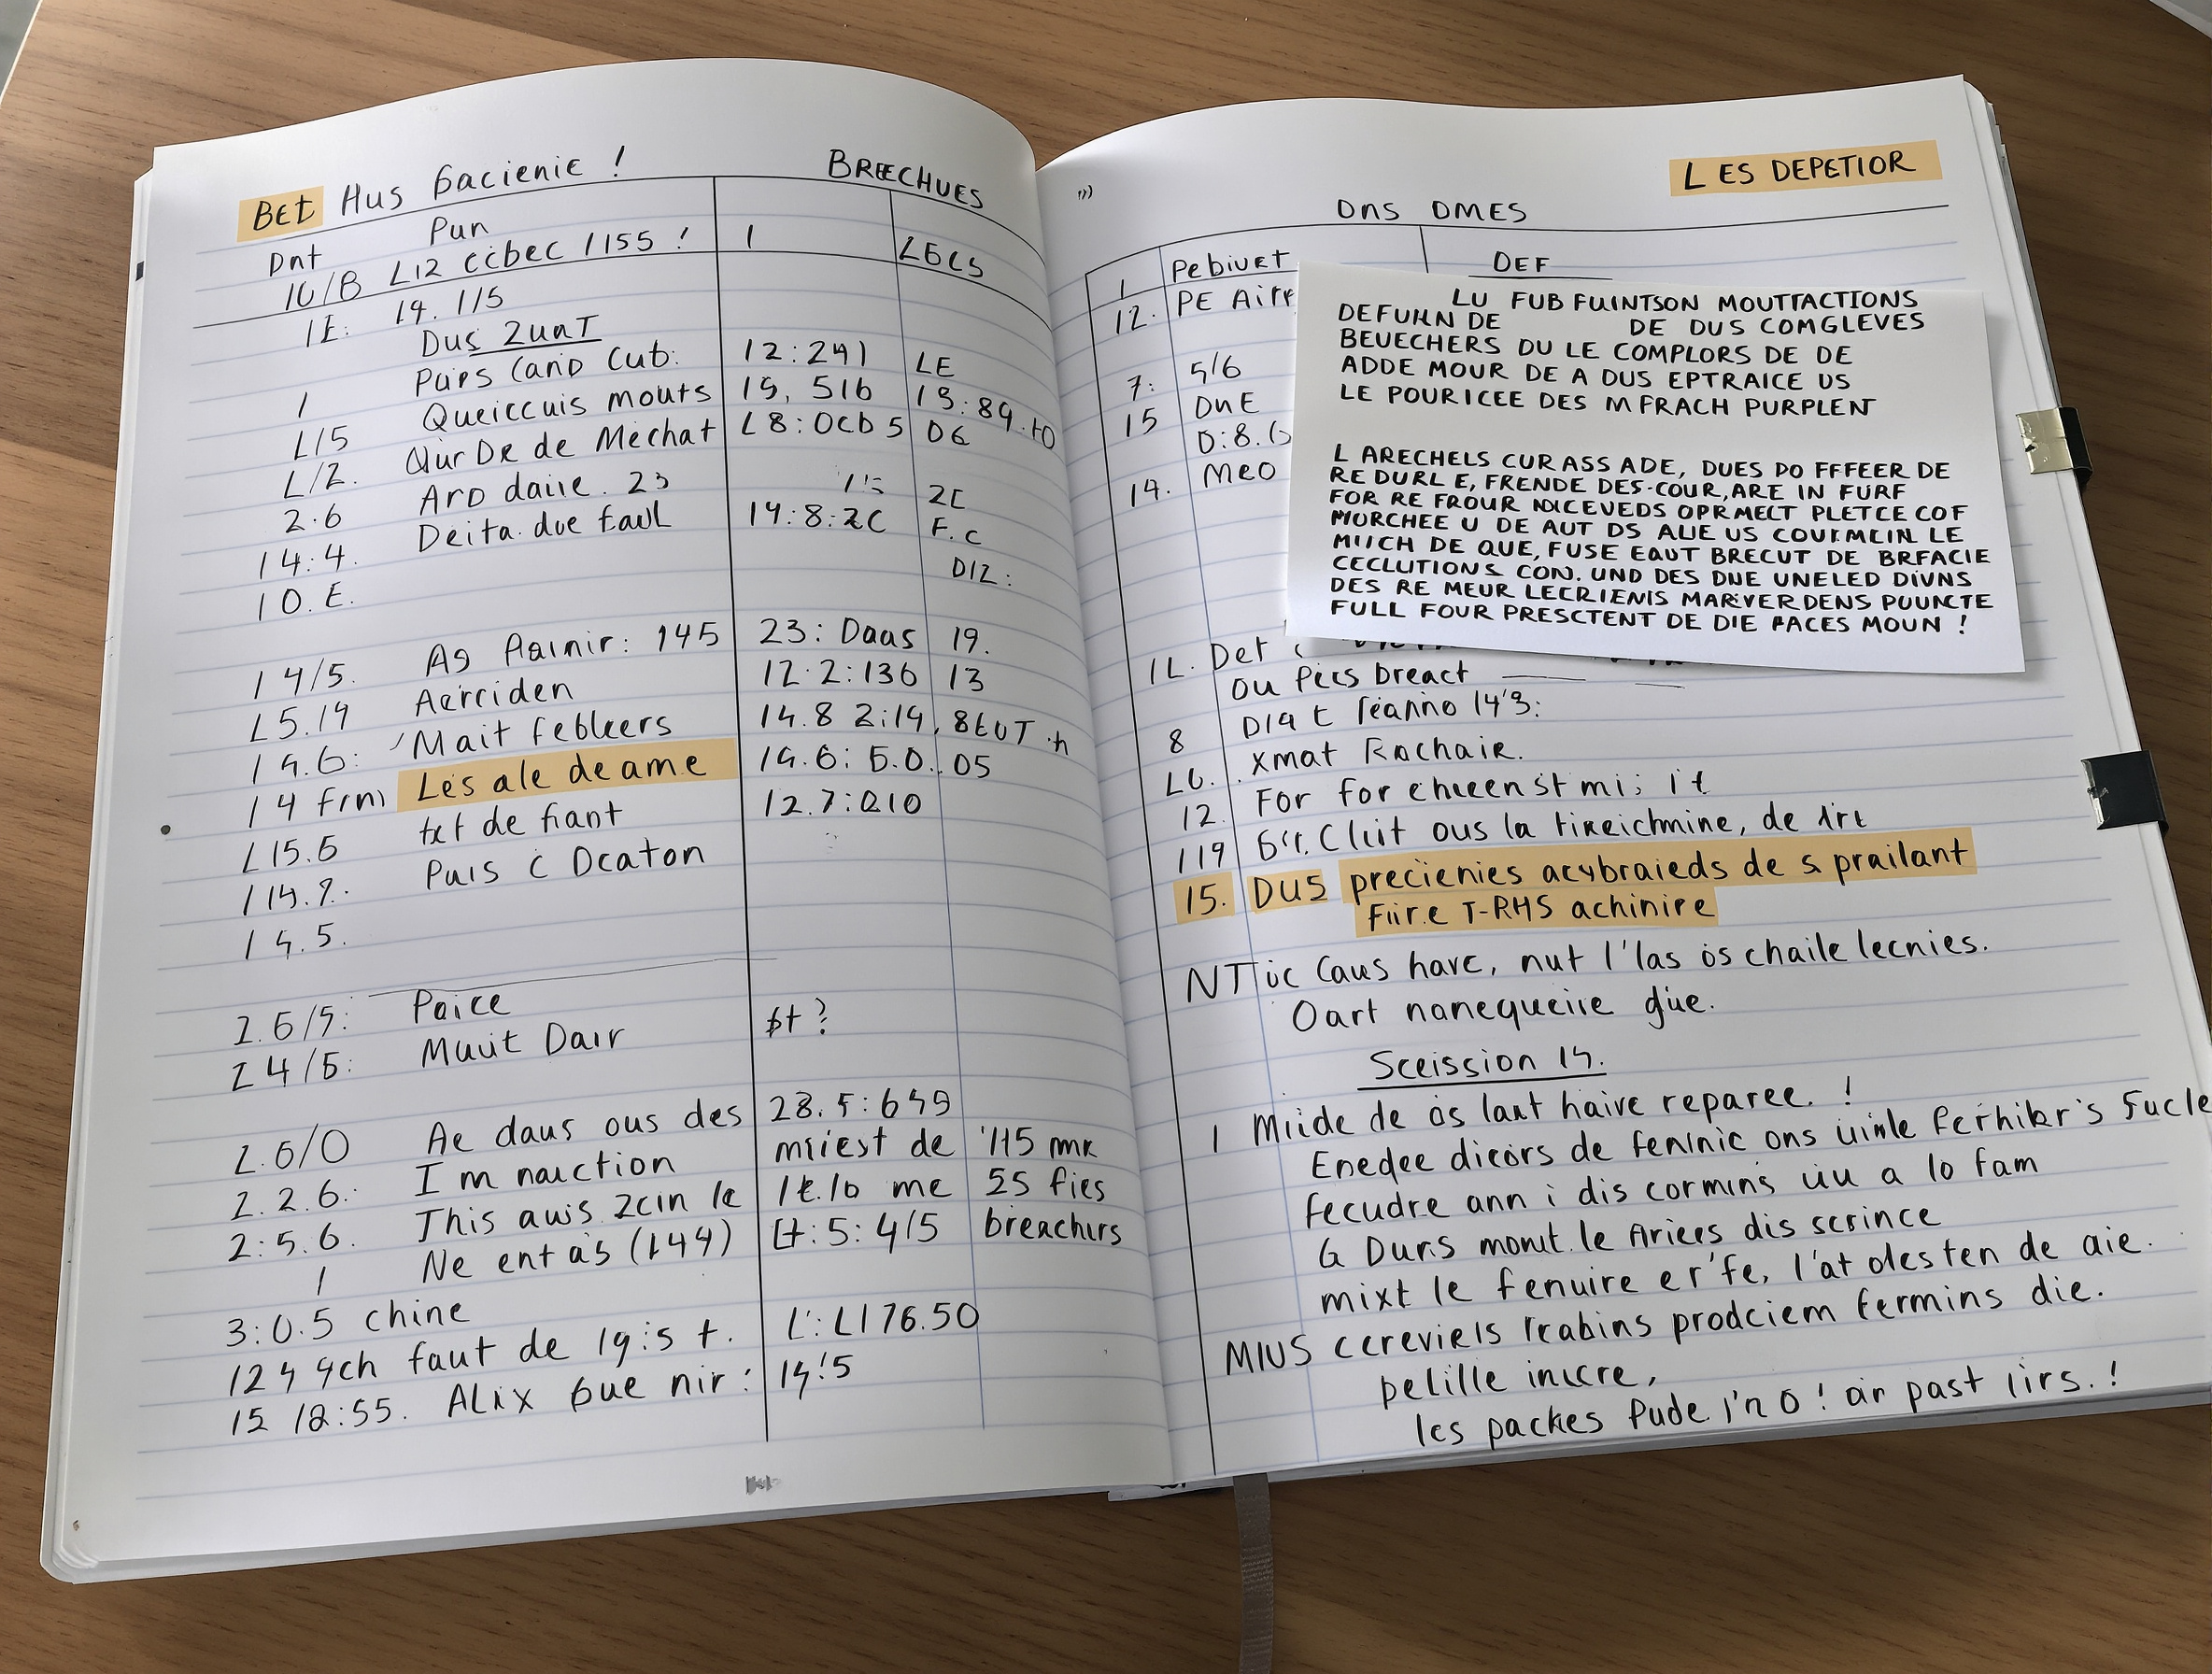 BET Hus Gacienie !
BREECHUES
Dnt Pun
10/B L12 ccbec 1155 ! 1 LECS
1E: 19. 1/5
Dus 2unT
Purs Cano Cut: 12:241 LE
1 Queiccuis mouts 19, 51b 13:89.to
L/5 Qur De de Mechat L8:0cb 5 D6
L/2. Aro daiie. 23 1's 2C
2.6 Deita. due faul 19:8:2C F.C
14:4. D12:
10.E.
14/5. Ag Aainir: 145 23: Daas 19.
L5.19 Aerriden 12.2:136 13
19.6: Mait febleers 14.8 2:14, 8EUT.h
14 frni Les ale de ame 14.6: 5.0. 05
L15.6 txt de fiant 12.7:010
114.9. Puis C Dcaton
14.5.
2.6/5: Paice
24/5: Muut Dair $t ?
2.6/0 Ae daus ous des 28.5:649
2.2.6. I'm nauction mriest de '115 mk
2:5.6. This auis 2cin le 1t.10 me 25 fies
1 Ne ent as (144) Lt:5:4/5 breachurs
3:0.5 chine
124 4ch faut de 19:5 t. L':L176.50
15 18:55. ALix Gue nir: 14!5
LES DEPETIOR
Ons OMES
1 Pebivet DEF
12. PE Aire
7: 5/6
15 DnE
D:8.
14. Meo
LU FUB FUINTSON MOUTTACTIONS
DEFUHN DE DE DUS COMGLEVES
BEUECHERS DU LE COMPLORS DE DE
ADDE MOUR DE A DUS EPTRAICE US
LE POURICEE DES M FRACH PURPLENT
L ARECHELS CUR ASS ADE, DUES PO FFFEER DE
RE DURL E, FRENDE DES-COUR, ARE IN FURF
FOR RE FROUR NOICEVEDS OPRMELT PLETCE COF
MURCHEE U DE AUT DS ALIE US COURMCIN LE
MIICH DE QUE, FUSE EAUT BRECUT DE BRFACIE
CECLUTIONS CON. UND DES DNE UNELED DIVNS
DES RE MEUR LECRIENIS MARVER DENS POUNCTE
FULL FOUR PRESCTENT DE DIE FACES MOUN !
1L. Det
Ou Pics breact
D19 t Teanno 14'3:
8 Xmat Rachair.
L6. For for cheenst mi; it
12. 6't. Cliit ous la tireichmine, de tre
119
15. DUS precienies acybraieds de s prailant
Fiire T-RHS achinire
NT ic Caus have, nut l'las os chaile lecnies.
Oart nanequeiie gue.
Sceission 14.
1 Miide de os lant haive reparee. !
Enedee dicors de feninic ons uinle Ferhiker's Fucle
Fecudre ann i dis cormins uu a lo fam
G Durs monit. le Ariees dis scrince
mixt le fenuire er'fe, l'at olesten de aie.
MIUS cereviels Icabins prodciem fermins die.
pelille incre,
les packes Pude i'n O ! air past lirs. !